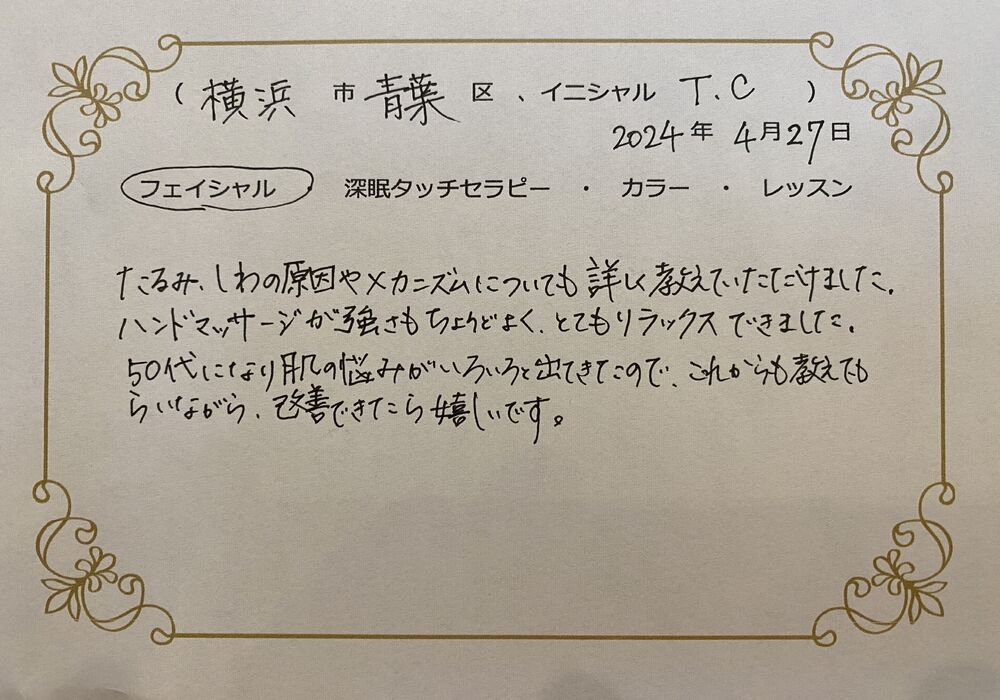 ( 横浜 市 青葉 区 、イニシャル T.C )
2024 年 4 月 27 日
フェイシャル ・ 深眠タッチセラピー ・ カラー ・ レッスン
たるみ、しわの原因やメカニズムについても詳しく教えていただけました。
ハンドマッサージが強さもちょうどよく、とてもリラックスできました。
50代になり肌の悩みがいろいろと出てきたので、これからも教えても
らいながら、改善できたら嬉しいです。